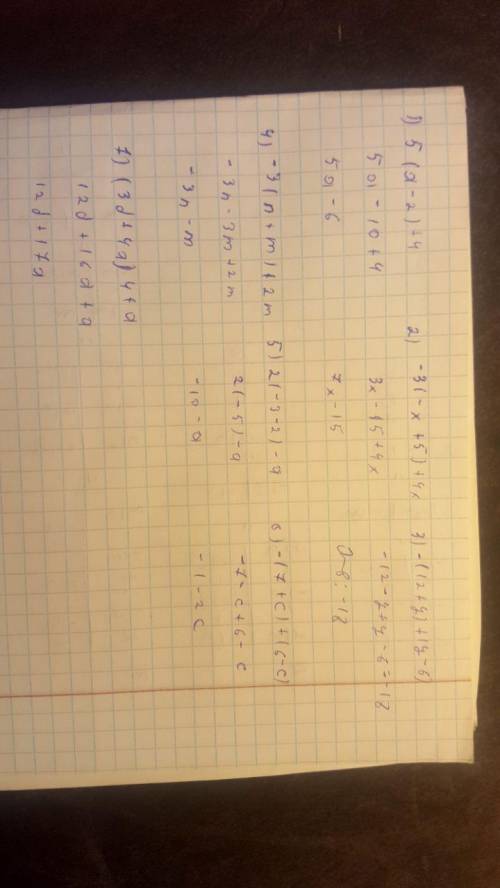 1) 5(a-2)+4
5a-10+4
5a-6
2) -3(-x+5)+4x
3x-15+4x
7x-15
3) -(12+y)+(y-6)
-12-y+y-6=-18
-18
4) -3(n+m)+2m
-3n-3m+2m
-3n-m
5) 2(-3-2)-a
2(-5)-a
-10-a
6) -(7+c)+(6-c)
-7-c+6-c
-1-2c
7) (3d+4a)4+a
12d+16a+a
12d+17a